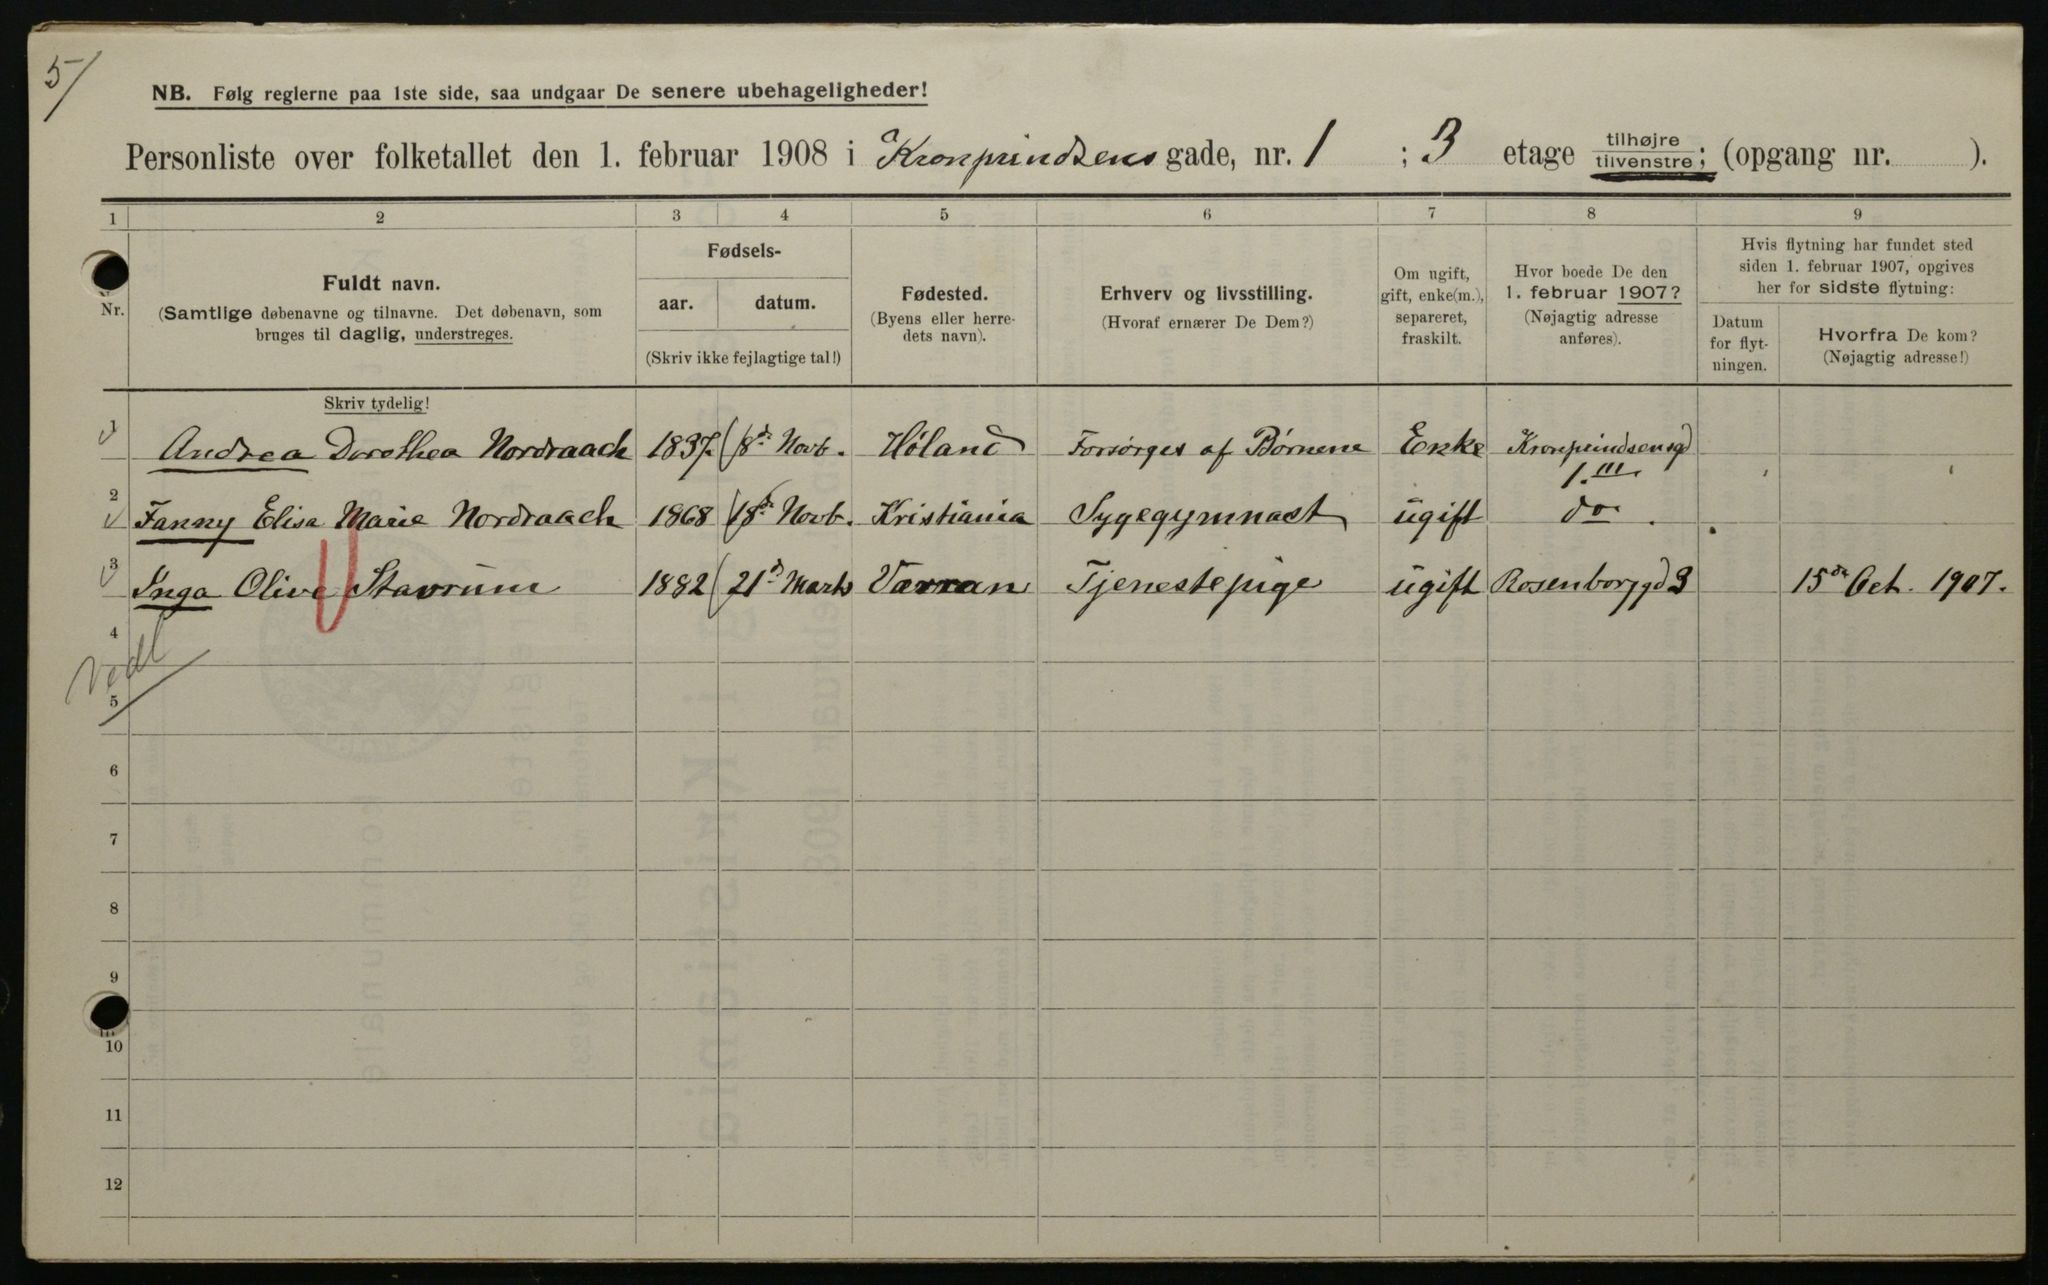 5/
NB. Følg reglerne paa 1ste side, saa undgaar De senere ubehageligheder!
Personliste over folketallet den 1. februar 1908 i Kronprindsens gade, nr. 1 ; 3 etage tilhøjre tilvenstre; (opgang nr. ).
1 2 3 4 5 6 7 8 9
Nr.
Fuldt navn.
(Samtlige døbenavne og tilnavne. Det døbenavn, som
bruges til daglig, understreges.
Fødsels-
aar. datum.
(Skriv ikke fejlagtige tal!)
Fødested.
(Byens eller herre-
dets navn).
Erhverv og livsstilling.
(Hvoraf ernærer De Dem?)
Om ugift,
gift, enke(m.),
separeret,
fraskilt.
Hvor boede De den
1. februar 1907?
(Nøjagtig adresse
anføres).
Hvis flytning har fundet sted
siden 1. februar 1907, opgives
her for sidste flytning:
Datum
for flyt-
ningen.
Hvorfra De kom?
(Nøjagtig adresse!)
Skriv tydelig!
1 Andrea Dorothea Nordraach 1837 8de Novb. Høland Forsørges af Børnene Enke Kronprindsensgd
1.III
2 Fanny Elisa Marie Nordraach 1868 18de Novb. Kristiania Sygegymnast ugift do.
3 Inga Olive Stavrum 1882 21d Marts Værran Tjenestepige ugift Rosenborggd 3 15de Oct. 1907.
4
Vedl
5
6
7
8
9
10
11
12